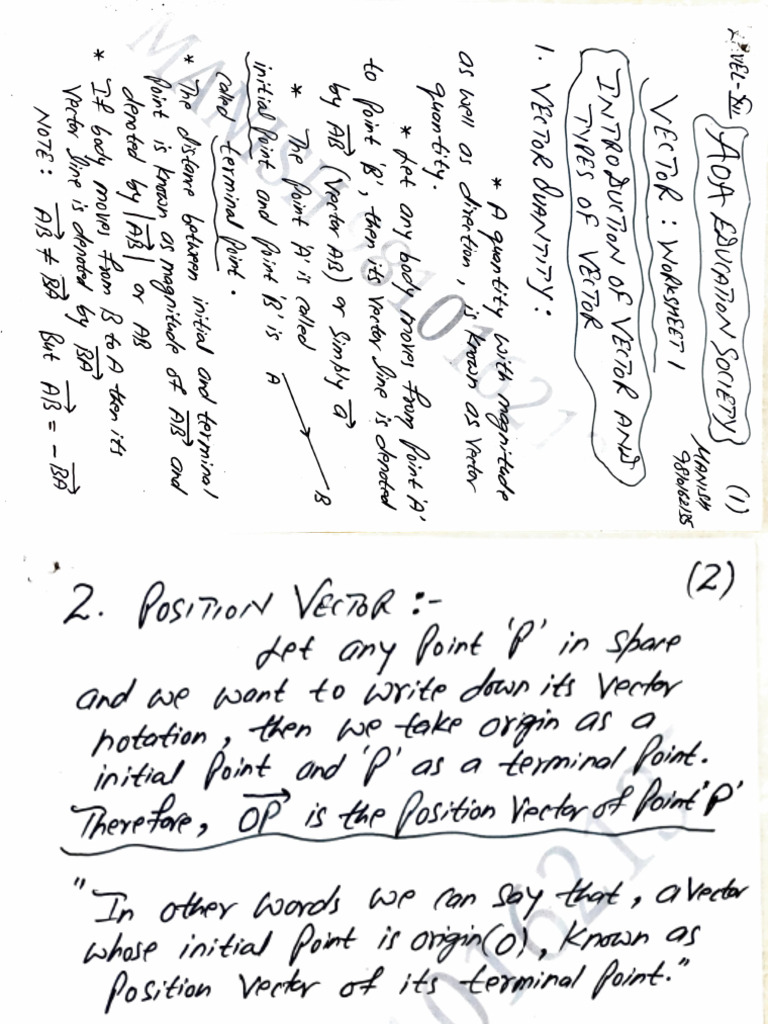 LEVEL-XII
(1)
AOA EDUCATION SOCIETY
MANISH
VECTOR : WORKSHEET 1
INTRODUCTION OF VECTOR AND
TYPES OF VECTOR
1. VECTOR QUANTITY :
* A quantity with magnitude
as well as direction, is known as vector
quantity.
* Let any body moves from point 'A'
to point 'B', then its vector line is denoted
by AB (Vector AB) or simply a
* The point 'A' is called
initial point and point 'B' is
called terminal point.
A B
* The distance between initial and terminal
point is known as magnitude of AB and
denoted by |AB| or AB
* If body moves from B to A then its
vector line is denoted by BA
NOTE : AB ≠ BA But AB = - BA
(2)
2. POSITION VECTOR :-
Let any point 'P' in space
and we want to write down its vector
notation, then we take origin as a
initial point and 'P' as a terminal point.
Therefore, OP is the position vector of point 'P'
"In other words we can say that, a vector
whose initial point is origin(O), known as
position vector of its terminal point."